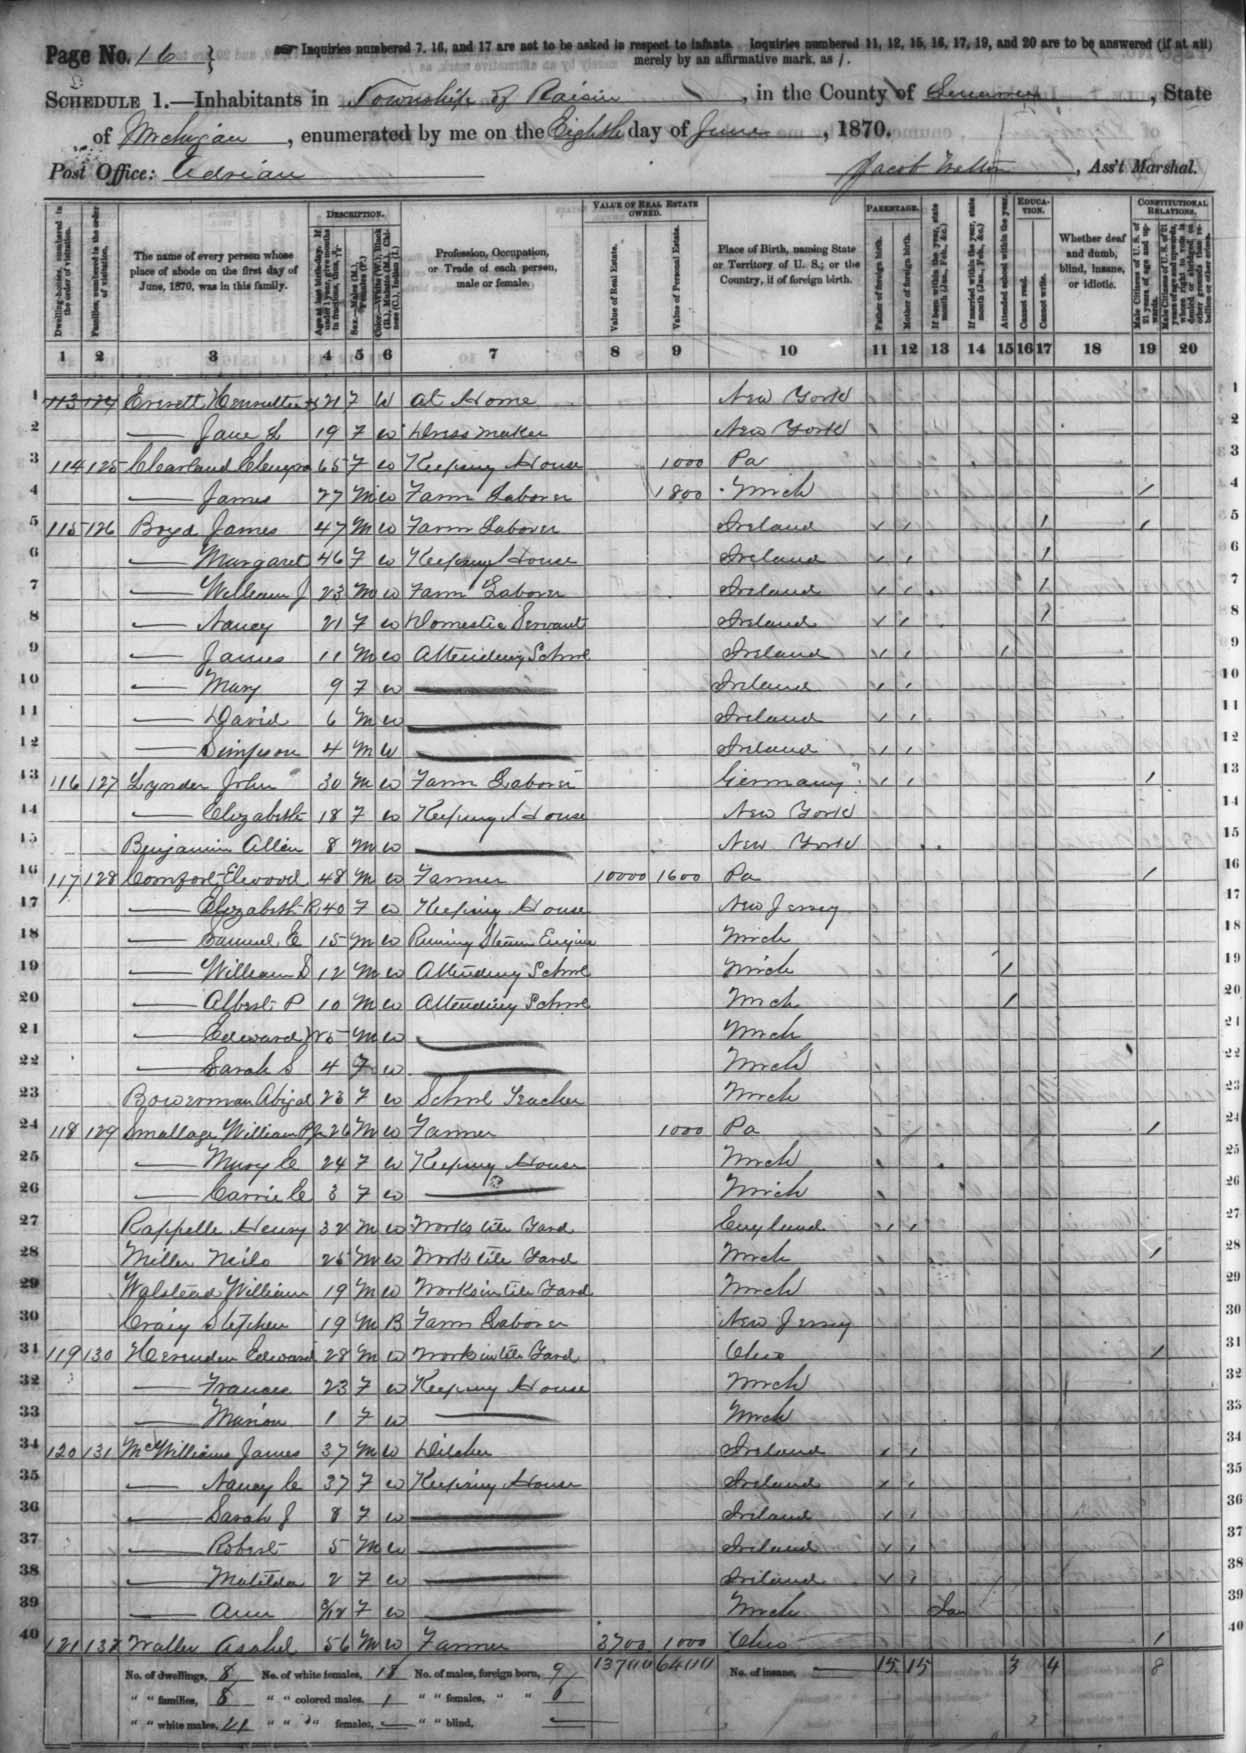 Page No. 16
Inquiries numbered 7, 16, and 17 are not to be asked in respect to infants. Inquiries numbered 11, 12, 15, 16, 17, 19, and 20 are to be answered (if at all)
merely by an affirmative mark, as /.
SCHEDULE 1.—Inhabitants in Township of Raisin, in the County of Lenawee, State
of Michigan, enumerated by me on the Eighth day of June, 1870.
Post Office: Adrian
Jacob, Ass't Marshal.
DESCRIPTION. VALUE OF REAL ESTATE OWNED. PARENTAGE. EDUCATION. CONSTITUTIONAL RELATIONS.
Dwelling-houses, numbered in the order of visitation.
Families, numbered in the order of visitation.
The name of every person whose place of abode on the first day of June, 1870, was in this family.
Age at last birth-day. If under 1 year, give months in fractions, thus, 3/12
Sex.—Males (M.), Females (F.)
Color.—White (W.), Black (B.), Mulatto (M.), Chinese (C.), Indian (I.)
Profession, Occupation, or Trade of each person, male or female.
Value of Real Estate.
Value of Personal Estate.
Place of Birth, naming State or Territory of U. S.; or the Country, if of foreign birth.
Father of foreign birth.
Mother of foreign birth.
If born within the year, state month (Jan., Feb., &c.)
If married within the year, state month (Jan., Feb., &c.)
Attended school within the year.
Cannot read.
Cannot write.
Whether deaf and dumb, blind, insane, or idiotic.
Male Citizens of U. S. of 21 years of age and upwards.
Male Citizens of U. S. of 21 years of age and upwards, whose right to vote is denied or abridged on other grounds than rebellion or other crime.
1 2 3 4 5 6 7 8 9 10 11 12 13 14 15 16 17 18 19 20
1 113 124 Everett 21 F W At Home New York 1
2 — Jane L 19 F W Dress Maker New York 2
3 114 125 Clearland 65 F W Keeping House 1000 Pa 3
4 — James 27 M W Farm Laborer 1800 Mich / 4
5 115 126 Boyd James 47 M W Farm Laborer Ireland / / / / 5
6 — Margaret 46 F W Keeping House Ireland / / / 6
7 — William J 23 M W Farm Laborer Ireland / / / 7
8 — Nancy 21 F W Domestic Servant Ireland / / / 8
9 — James 11 M W Attending School Ireland / / / 9
10 — Mary 9 F W — Ireland / / 10
11 — David 6 M W — Ireland / / 11
12 — Simpson 4 M W — Ireland / / 12
13 116 127 Lynder John 30 M W Farm Laborer Germany? / / / 13
14 — Elizabeth 18 F W Keeping House New York 14
15 Benjamin Allen 8 M W — New York 15
16 117 128 Comfort Elwood 48 M W Farmer 10000 1600 Pa / 16
17 — Elizabeth R 40 F W Keeping House New Jersey 17
18 — Samuel E 15 M W Runing Steam Engine Mich 18
19 — William D 12 M W Attending School Mich / 19
20 — Albert P 10 M W Attending School Mich / 20
21 — Edward W 5 M W — Mich 21
22 — Sarah S 4 F W — Mich 22
23 Bowerman Abigal 23 F W School Teacher Mich 23
24 118 129 Smallage William 26 M W Farmer 1000 Pa / 24
25 — Mary C 24 F W Keeping House Mich 25
26 — Carrie C 3 F W — Mich 26
27 Rappelle Henry 32 M W Works tile Yard England / / 27
28 Miller Milo 25 M W Works tile Yard Mich / 28
29 Walstead William 19 M W Works in tile Yard Mich 29
30 Craig Stephen 19 M B Farm Laborer New Jersey 30
31 119 130 Edward 28 M W Works in tile Yard Ohio / 31
32 — Frances 23 F W Keeping House Mich 32
33 — Marion 1 F W — Mich 33
34 120 131 McWilliams James 37 M W Ditcher Ireland / / 34
35 — Nancy C 37 F W Keeping House Ireland / / 35
36 — Sarah J 8 F W — Ireland / / 36
37 — Robert 5 M W — Ireland / / 37
38 — Matilda 2 F W — Ireland / / 38
39 — Ann /12 F W — Mich Jan 39
40 121 132 Waller Asahel 56 M W Farmer 3700 1000 Ohio / 40
No. of dwellings, 8 No. of white females, 18 No. of males, foreign born, 9 13700 6400 No. of insane, — 15 15 3 4 8
" " families, 8 " " colored males, 1 " " females, " "
" " white males, 21 " " " females, — " " blind, —